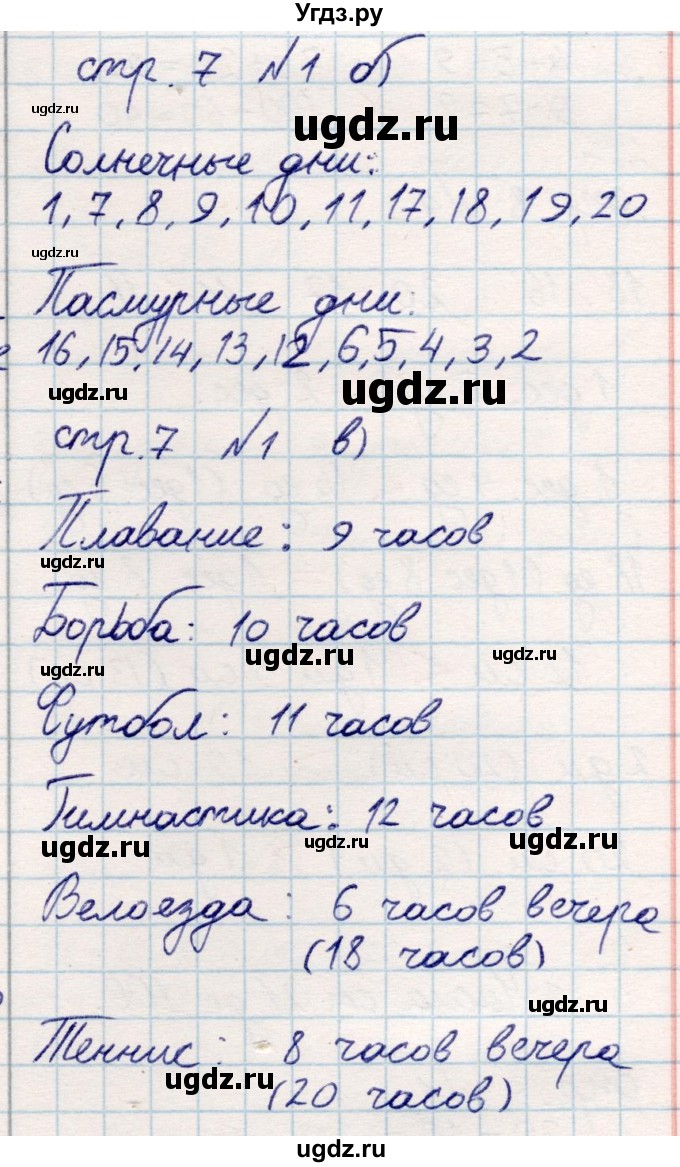 Угдз.ру
стр. 7 №1 б)
ugdz.ru
ugdz.ru
Солнечные дни:
1, 7, 8, 9, 10, 11, 17, 18, 19, 20
ugdz.ru
Пасмурные дни:
16, 15, 14, 13, 12, 6, 5, 4, 3, 2
ugdz.ru
ugdz.ru
стр. 7 №1 в)
Плавание: 9 часов
ugdz.ru
Борьба: 10 часов
ugdz.ru
ugdz.ru
ugdz.ru
Футбол: 11 часов
Гимнастика: 12 часов
ugdz.ru
ugdz.ru
ugdz.ru
Велоезда: 6 часов вечера
(18 часов)
ugdz.ru
Теннис: 8 часов вечера
ugdz.ru
(20 часов)
ugdz.ru